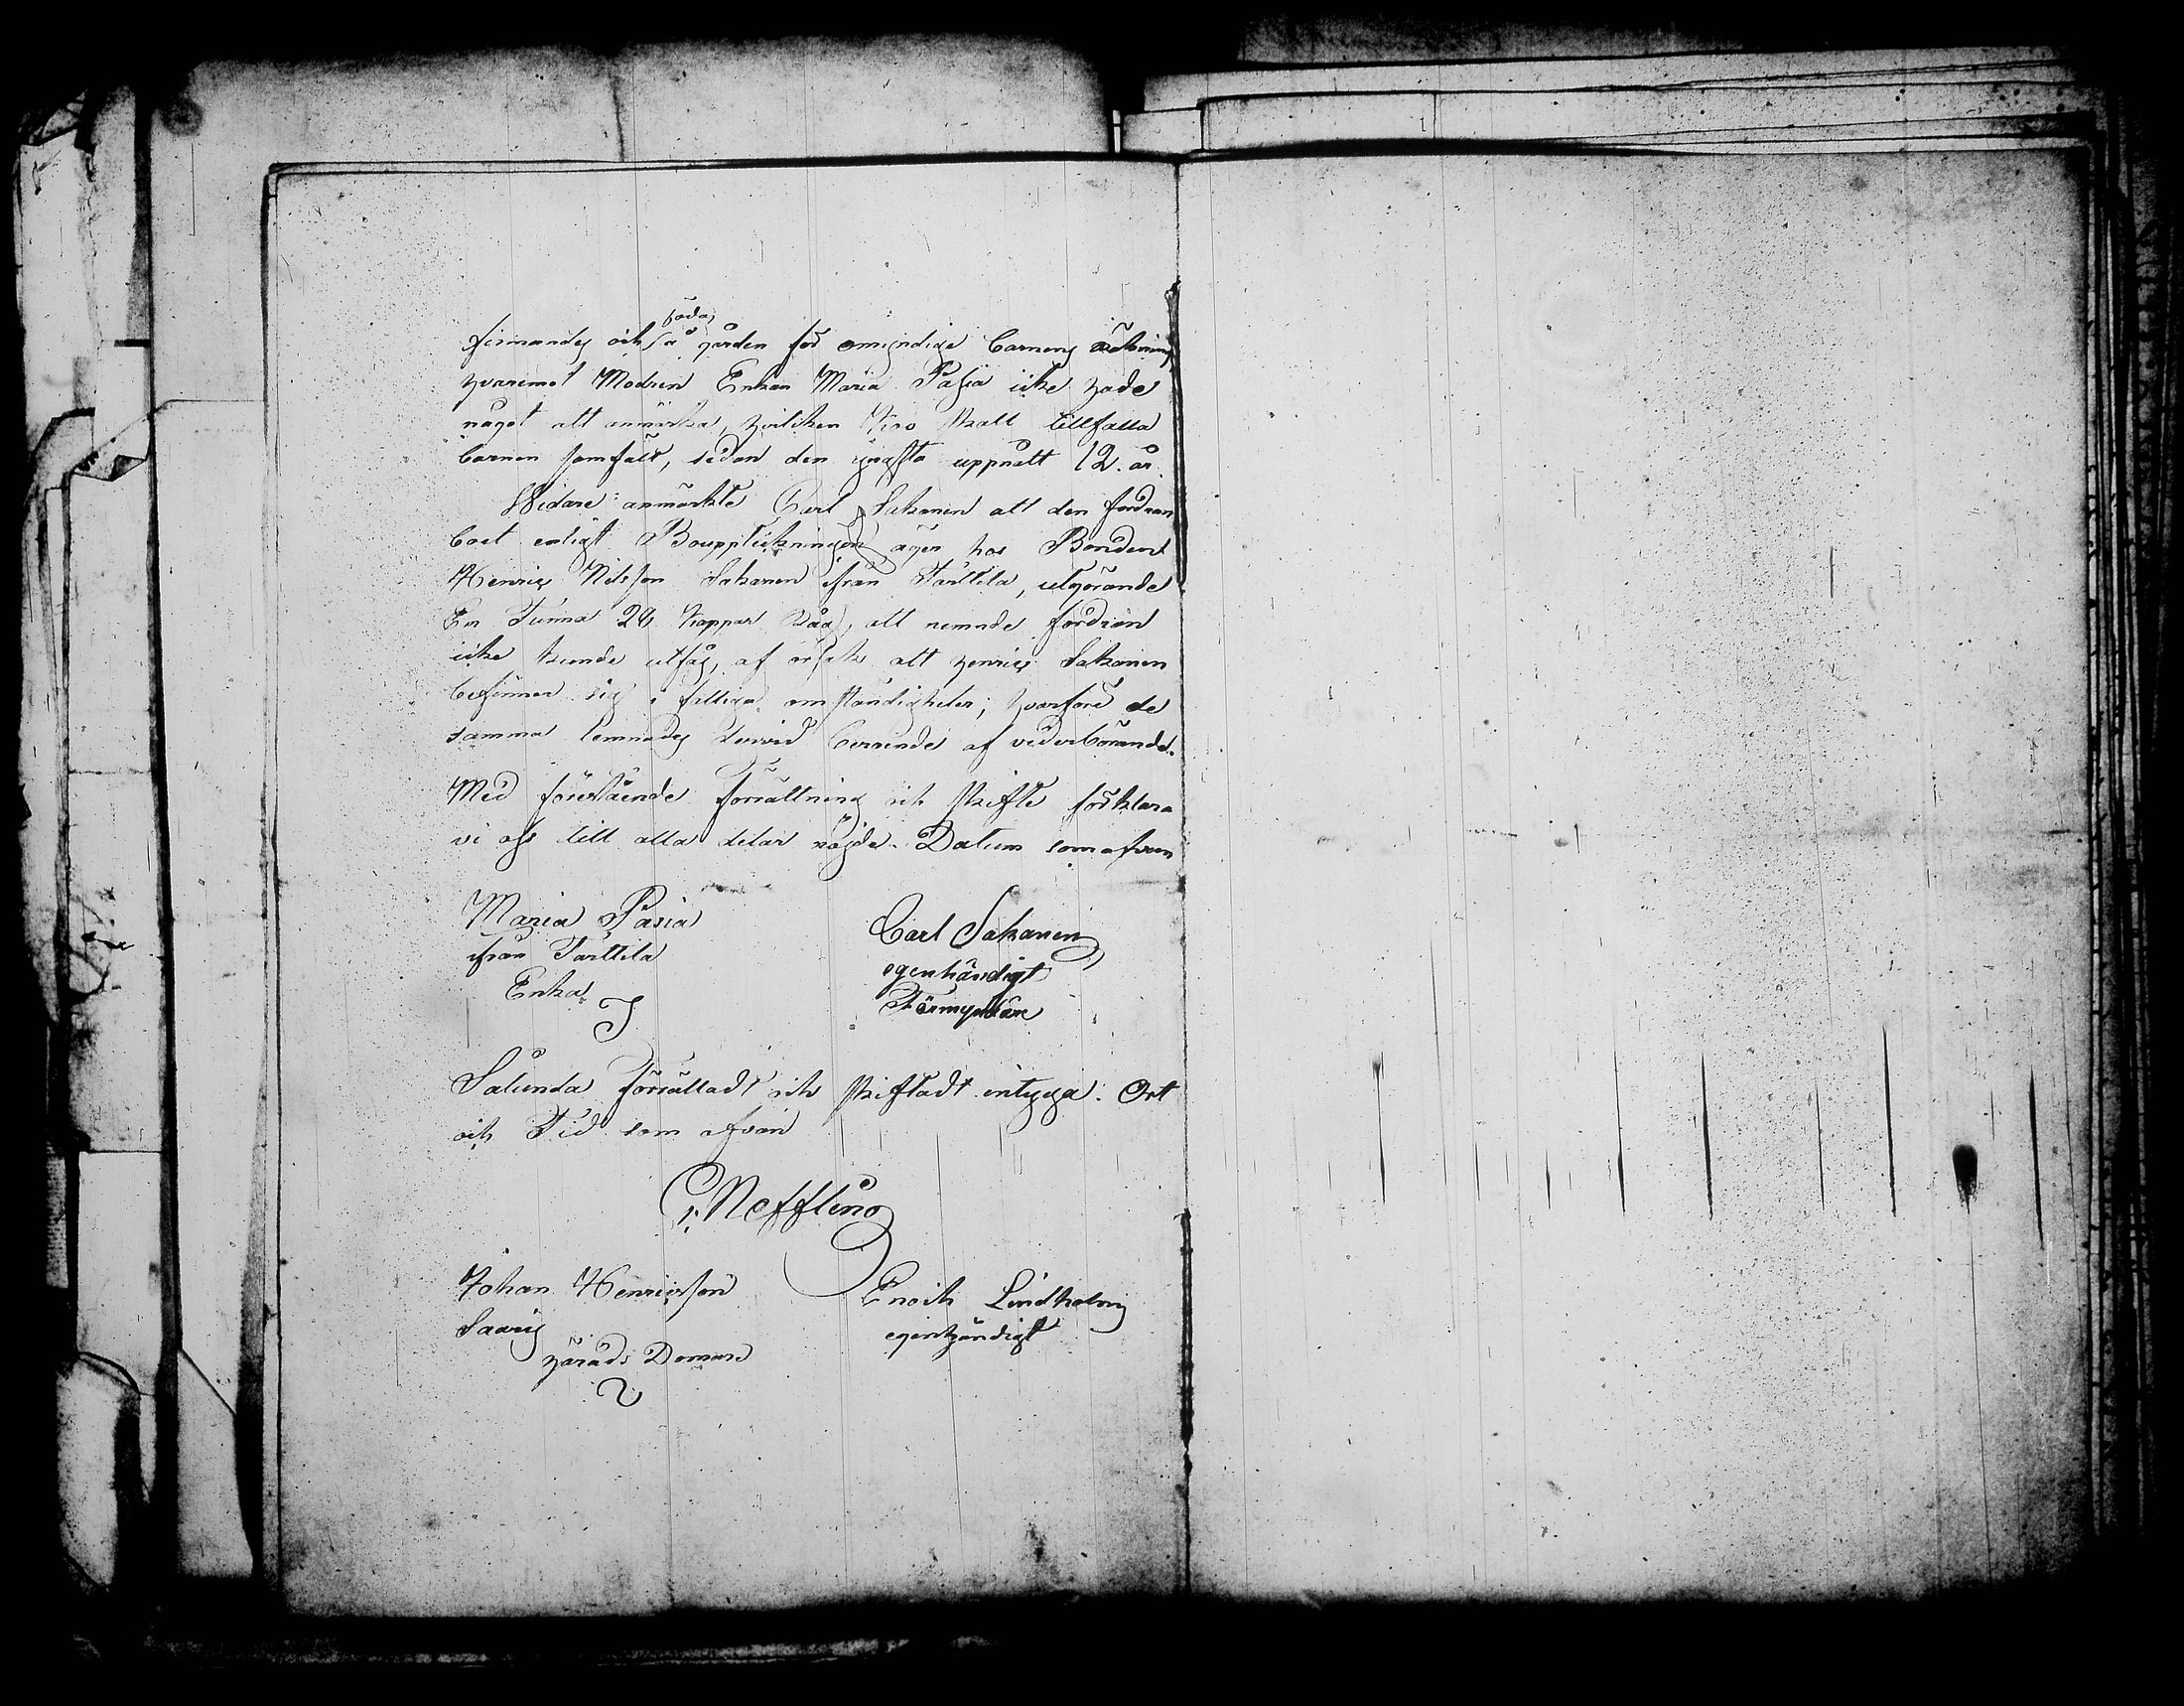 födas
finnandes och å gården för omyndige Barnens räkning
hvaremot Modren Enkan Maria Pasia icke hade
något att anmärka, hvilken Kiro skall tillfalla
barnen samfält, sedan den yngsta uppnått 12. år.
Widare anmärkte Carl Sakanen att den fordran
boet enligt Boupptekningen äger hos Bonden
Henric Nilsson Sakanen ifrån Tarttila, utgörande
En Tunna 24 kappar Råg, att nemnde fordran
icke kunde utfås, af orsak att Henric Sakanen
befinner sig i fattiga omständigheter; hvarföre de
samma lemnades dervid beroende af vederbörande.
Med förestående förrättning och skifte förklara
vi oss till alla delar nöjde. Datum som ofvan
Maria Pasia
ifrån Tarttila
Enka
Carl Sakanen
egenhändigt
Förmyndare
Sålunda förrättadt och skiftadt intyga. Ort
och Tid som ofvan
Neffling
Johan Henricsson
Saaris
härads Domare
Enoch Lindholm
egenhändigt